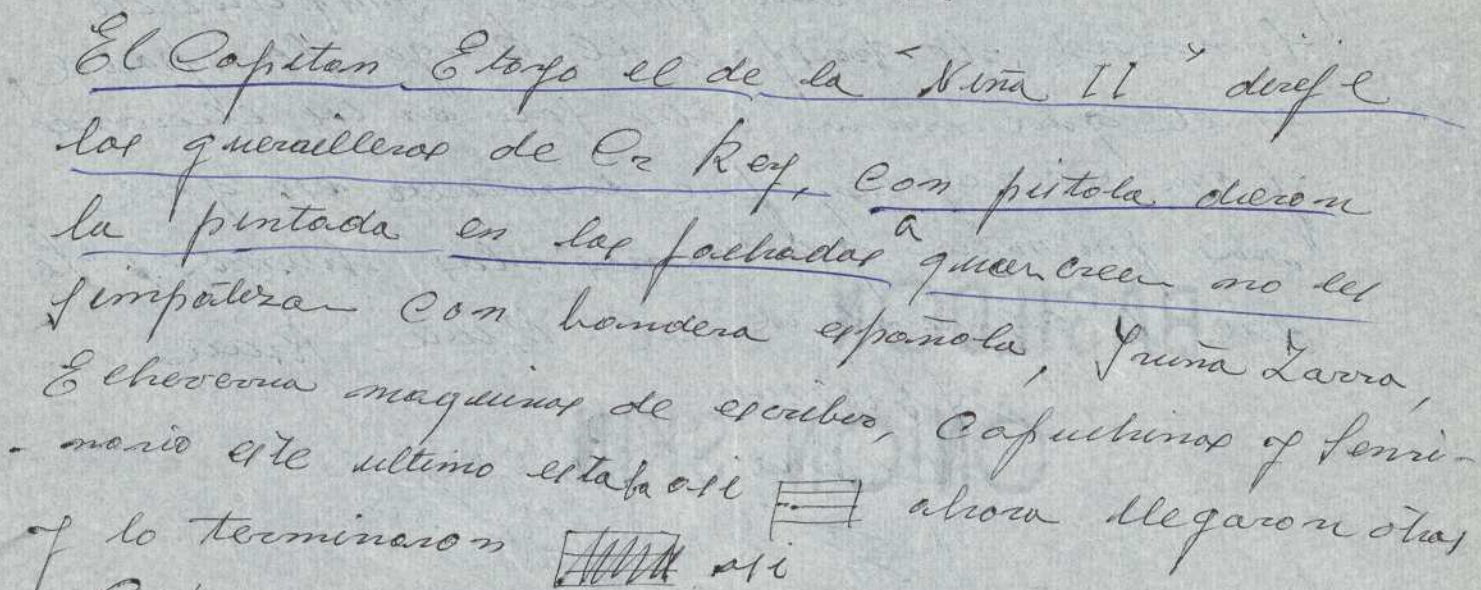 El Capitan Etayo el de la "Niña II" dirije
los guerrilleros de Cr Rey, con pistola dieron
la pintada en las fachadas a quien creen no les
simpatizan con bandera española, Iruña Zarra,
Echeverria maquinas de escribir, Capuchinos y Semi-
-nario este ultimo estaba asi ahora llegaron otras
y lo terminaron asi